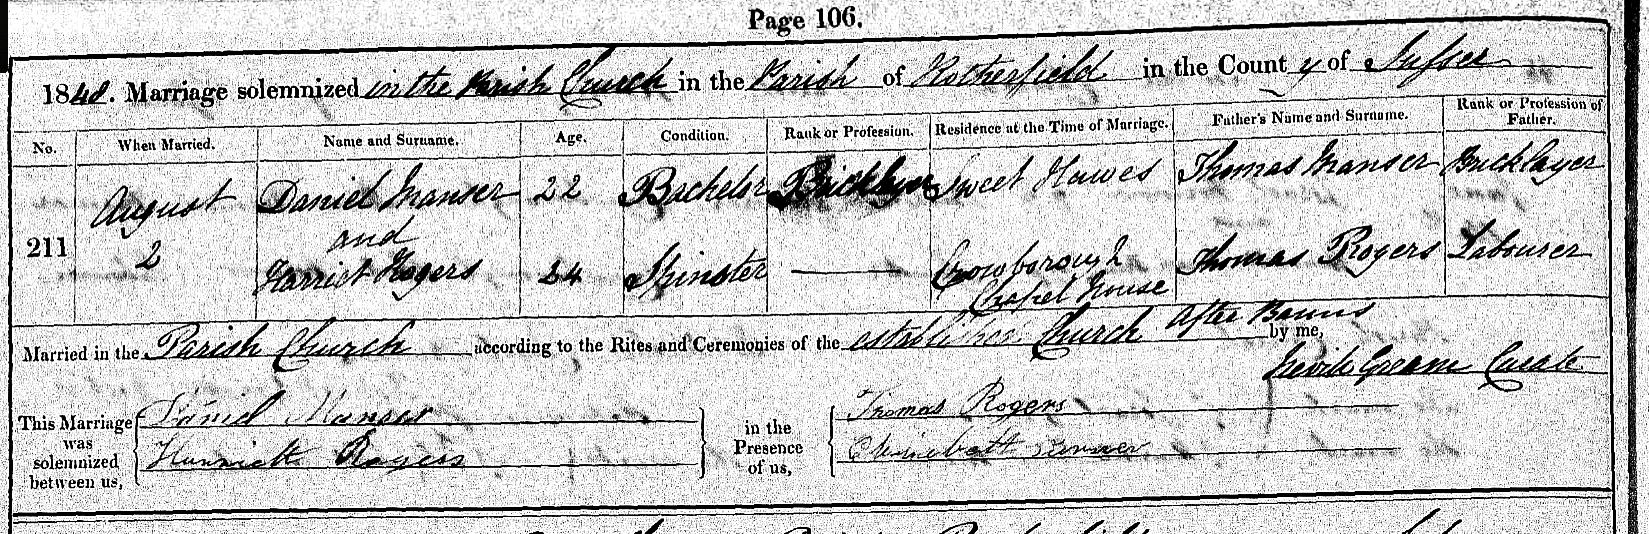 Page 106.
1848. Marriage solemnized in the Parish Church in the Parish of Rotherfield in the County of Sussex
No. When Married. Name and Surname. Age. Condition. Rank or Profession. Residence at the Time of Marriage. Father's Name and Surname. Rank or Profession of Father.
211 August 2 Daniel Manser 22 Bachelor Bricklayer Sweet Hawes Thomas Manser Bricklayer
and
Harriet Rogers 24 Spinster — Crowborough Chapel House Thomas Rogers Labourer
Married in the Parish Church according to the Rites and Ceremonies of the established Church After Banns by me,
Curate
This Marriage was solemnized between us, Daniel Manser
Harriett Rogers
in the Presence of us, Thomas Rogers